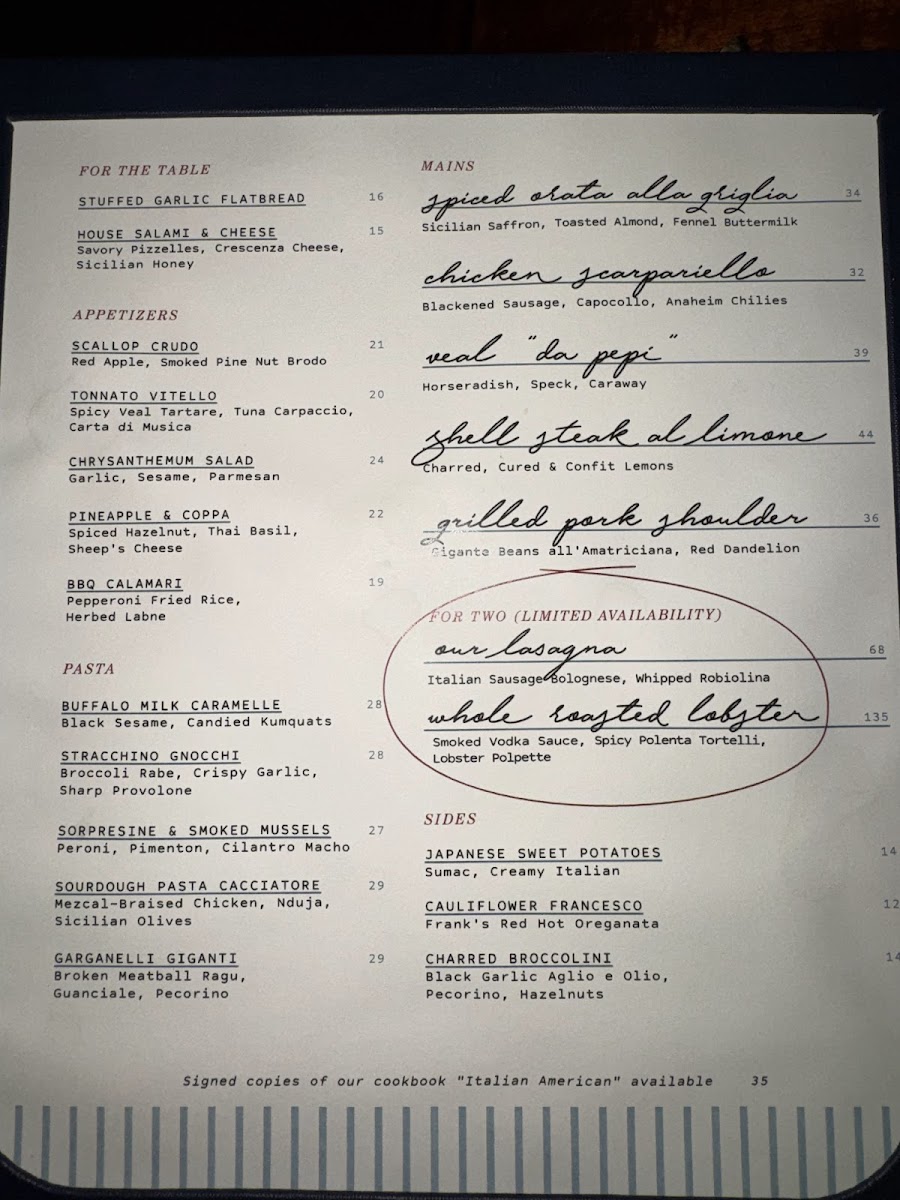 FOR THE TABLE
STUFFED GARLIC FLATBREAD 16
HOUSE SALAMI & CHEESE 15
Savory Pizzelles, Crescenza Cheese,
Sicilian Honey
APPETIZERS
SCALLOP CRUDO 21
Red Apple, Smoked Pine Nut Brodo
TONNATO VITELLO 20
Spicy Veal Tartare, Tuna Carpaccio,
Carta di Musica
CHRYSANTHEMUM SALAD 24
Garlic, Sesame, Parmesan
PINEAPPLE & COPPA 22
Spiced Hazelnut, Thai Basil,
Sheep's Cheese
BBQ CALAMARI 19
Pepperoni Fried Rice,
Herbed Labne
PASTA
BUFFALO MILK CARAMELLE 28
Black Sesame, Candied Kumquats
STRACCHINO GNOCCHI 28
Broccoli Rabe, Crispy Garlic,
Sharp Provolone
SORPRESINE & SMOKED MUSSELS 27
Peroni, Pimenton, Cilantro Macho
SOURDOUGH PASTA CACCIATORE 29
Mezcal-Braised Chicken, Nduja,
Sicilian Olives
GARGANELLI GIGANTI 29
Broken Meatball Ragu,
Guanciale, Pecorino
MAINS
spiced orata alla griglia 34
Sicilian Saffron, Toasted Almond, Fennel Buttermilk
chicken scarpariello 32
Blackened Sausage, Capocollo, Anaheim Chilies
veal "da pepi" 39
Horseradish, Speck, Caraway
shell steak al limone 44
Charred, Cured & Confit Lemons
grilled pork shoulder 36
Gigante Beans all'Amatriciana, Red Dandelion
FOR TWO (LIMITED AVAILABILITY)
our lasagna 68
Italian Sausage Bolognese, Whipped Robiolina
whole roasted lobster 135
Smoked Vodka Sauce, Spicy Polenta Tortelli,
Lobster Polpette
SIDES
JAPANESE SWEET POTATOES 14
Sumac, Creamy Italian
CAULIFLOWER FRANCESCO 12
Frank's Red Hot Oreganata
CHARRED BROCCOLINI 14
Black Garlic Aglio e Olio,
Pecorino, Hazelnuts
Signed copies of our cookbook "Italian American" available 35